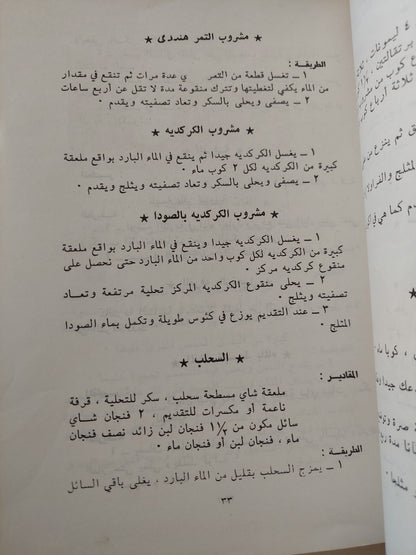 ★ مشروب التمر هندى ★
الطريقة :
١ ــ تغسل قطعة من التمر ى عدة مرات ثم تنقع في مقدار
من الماء يكفي لتغطيتها وتترك منقوعة مدة لا تقل عن أربع ساعات
٢ ــ يصفى ويحلى بالسكر وتعاد تصفيته ويقدم ٠
★ مشروب الكركديه ★
١ ــ يغسل الكركديه جيدا ثم ينقع في الماء البارد بواقع ملعقة
كبيرة من الكركديه لكل ٢ كوب ماء ٠
٢ ــ يصفى ويحلى بالسكر وتعاد تصفيته ويثلج ويقدم ٠
★ مشروب الكركديه بالصودا ★
١ ــ يغسل الكركديه جيدا وينقع في الماء البارد بواقع ملعقة
كبيرة من الكركديه لكل كوب واحد من الماء البارد حتى نحصل على
منقوع كركديه مركز ٠
٢ ــ يحلى منقوع الكركديه المركز تحلية مرتفعة وتعاد
تصفيته ويثلج ٠
٣ ــ عند التقديم يوزع في كئوس طويلة وتكمل بماء الصودا
المثلج ٠
★ السحلب ★
المقادير :
ملعقة شاي مسطحة سحلب ، سكر للتحلية ، قرفة
ناعمة أو مكسرات للتقديم ، ٢ فنجان شاي
سائل مكون من ١½ فنجان لبن زائد نصف فنجان
ماء ، فنجان لبن أو فنجان ماء ٠
الطريقة :
١ ــ يمزج السحلب بقليل من الماء البارد ، يغلى باقي السائل
٣٣